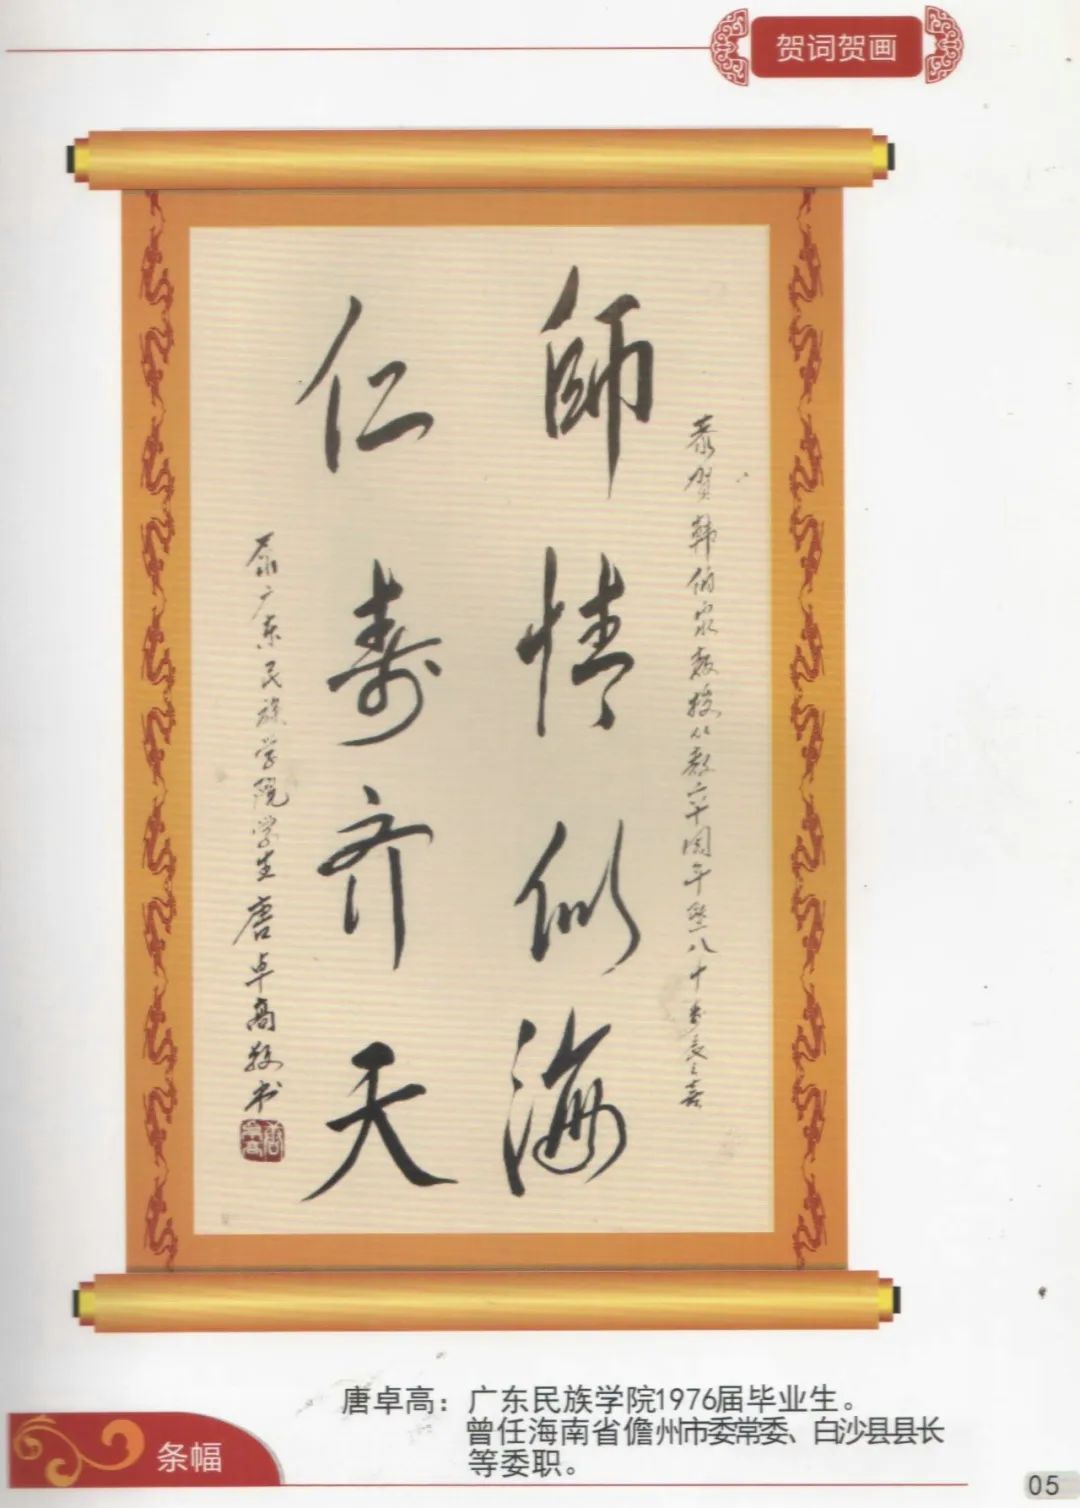 贺词贺画
恭贺韩伯泉教授从教六十周年暨八十寿辰之喜
師情似海
仁寿齐天
原广东民族学院学生唐卓高敬书
唐卓高：广东民族学院1976届毕业生。
曾任海南省儋州市委常委、白沙县县长
等委职。
条幅
05